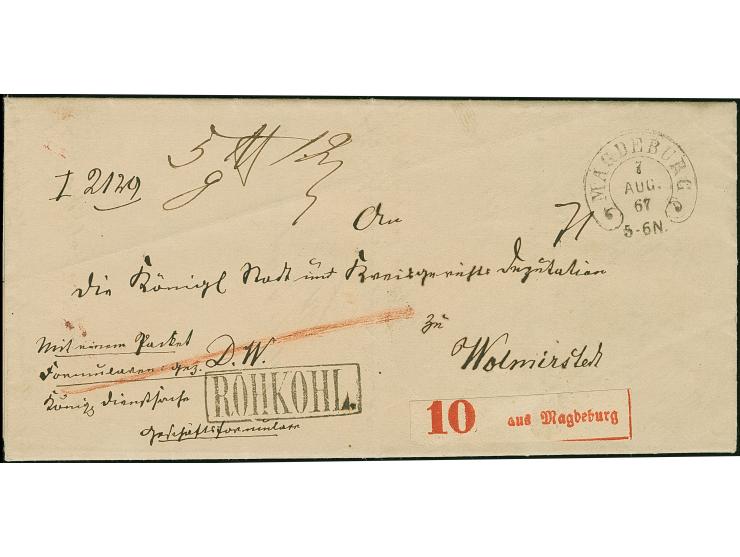 I 2129
5 ℔ 12
MAGDEBURG
7
AUG.
67
5-6N.
An
die Königl Stadt und Kreisgerichts Deputation
zu
Wolmirstedt
Mit einem Packet
Formularen gez. D. W.
Königl Dienstsache
Geschäftsformulare
ROHKOHL.
10 aus Magdeburg